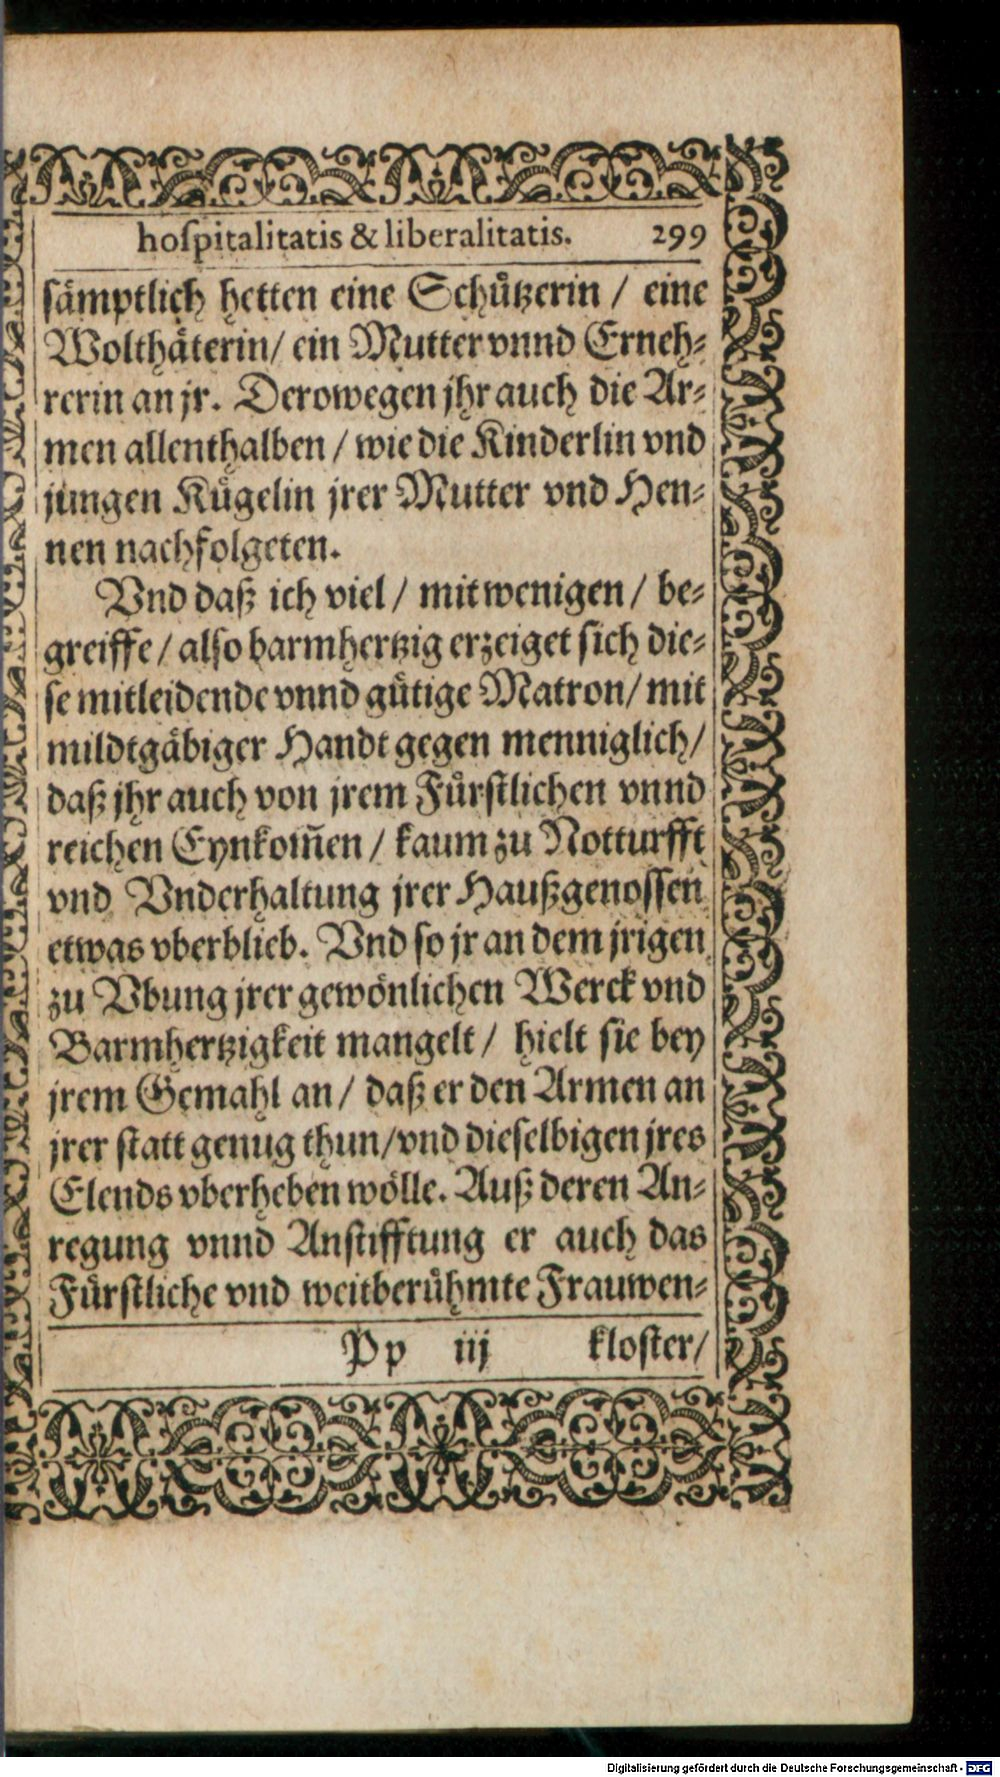 hoſpitalitatis & liberalitatis. 299
ſämptlich hetten eine Schuͤtzerin / eine
Wolthäterin/ ein Mutter vnnd Erneh⸗
rerin an jr. Derowegen jhr auch die Ar⸗
men allenthalben / wie die Kinderlin vnd
jungen Kuͤgelin jrer Mutter vnd Hen⸗
nen nachfolgeten.
Vnd daß ich viel / mit wenigen / be⸗
greiffe / alſo barmhertzig erzeiget ſich die⸗
ſe mitleidende vnnd guͤtige Matron/ mit
mildtgäbiger Handt gegen menniglich/
daß jhr auch von jrem Fuͤrſtlichen vnnd
reichen Eynkom̃en / kaum zu Notturfft
vnd Vnderhaltung jrer Haußgenoſſen
etwas vberblieb. Vnd ſo jr an dem jrigen
zu Vbung jrer gewönlichen Werck vnd
Barmhertzigkeit mangelt / hielt ſie bey
jrem Gemahl an / daß er den Armen an
jrer ſtatt genug thun/vnd dieſelbigen jres
Elends vberheben wölle. Auß deren An⸗
regung vnnd Anſtifftung er auch das
Fuͤrſtliche vnd weitberuͤhmte Frauwen⸗
Pp iij kloſter/
Digitalisierung gefördert durch die Deutsche Forschungsgemeinschaft - DFG